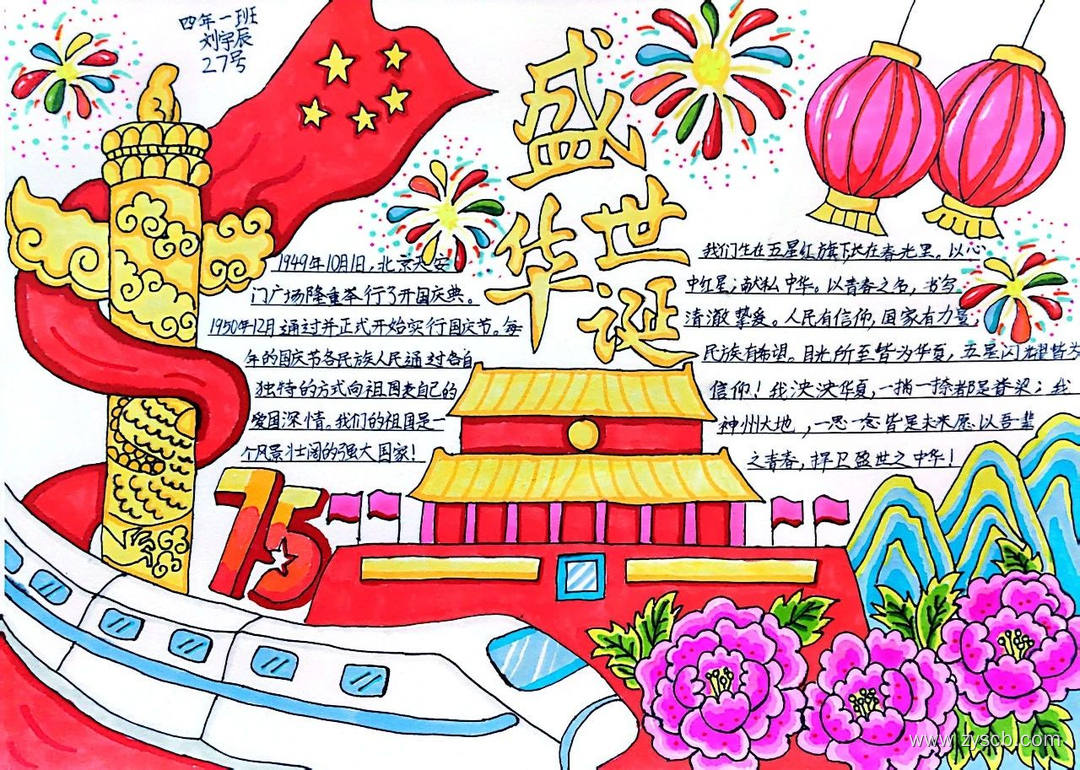 四年一班
刘宇辰
27号
盛
世
华
诞
1949年10月1日,北京天安
门广场隆重举行了开国庆典。
1950年12月通过并正式开始实行国庆节。每
年的国庆节各民族人民通过各自
独特的方式向祖国表自己的
爱国深情。我们的祖国是一
个风景壮阔的强大国家!
我们生在五星红旗下长在春光里。以心
中红星;献私中华。以青春之名,书写
清澈挚爱。人民有信仰,国家有力量,
民族有希望。目光所至皆为华夏,五星闪耀皆为
信仰!我泱泱华夏,一捎一捺都是脊梁;我
神州大地,一思一念皆是未来愿以吾辈
之青春,捍卫盛世之中华!
75
www.zyscb.com